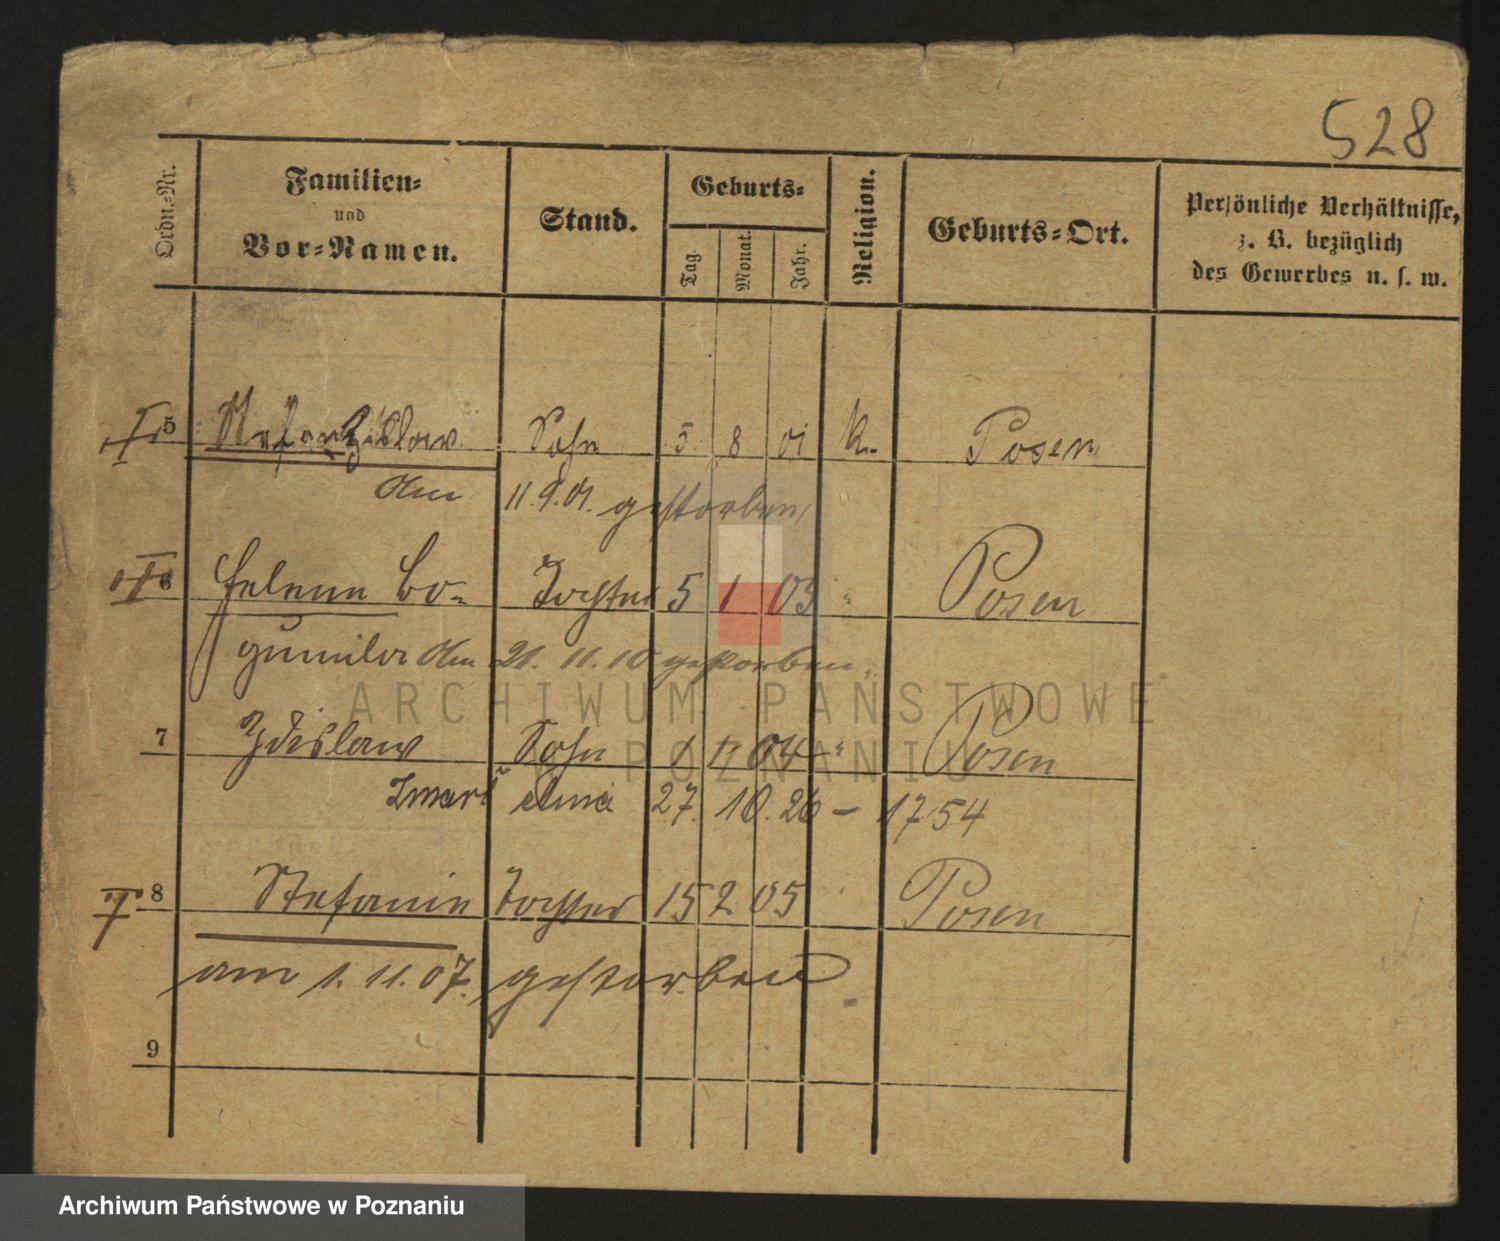 528
Ordn.-Nr.
Familien-
und
Vor-Namen.
Stand.
Geburts-
Tag.
Monat.
Jahr.
Religion.
Geburts-Ort.
Persönliche Verhältnisse,
z. B. bezüglich
des Gewerbes u. s. w.
5 Sohn 5. 8 01 k. Posen
Am 11.9.01. gestorben
6 Helene Bo- Tochter 5 1 03 " Posen
gumila Am 21. 11. 10 gestorben.
ARCHIWUM PAŃSTWOWE
7 Zdislaw Sohn 1 11 04 " Posen
W POZNANIU
Zmarł dnia 27. 10. 26 – 1754
8 Stefanie Tochter 15 2 05 Posen
am 1. 11. 07. gestorben
9
Archiwum Państwowe w Poznaniu